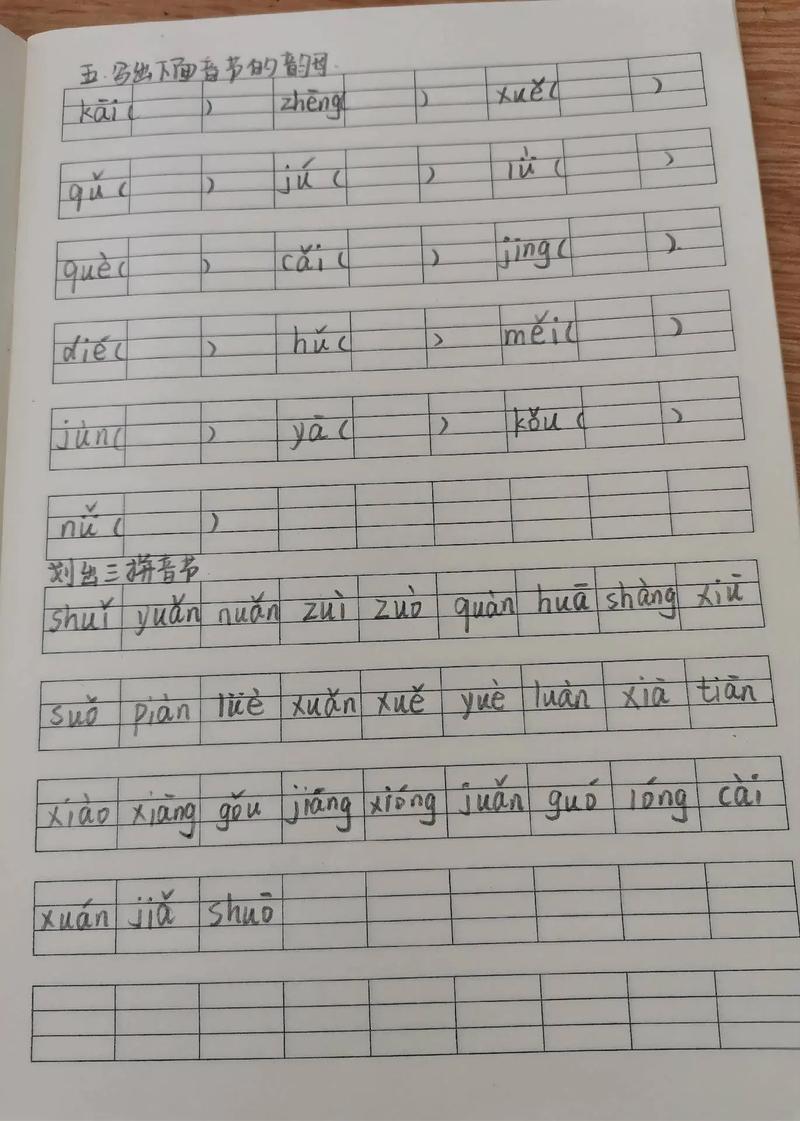 五.写出下面音节的韵母.
kāi( ) zhēng( ) xuě( )
qǔ( ) jú( ) lǜ( )
què( ) cǎi( ) jing( )
dié( ) hú( ) měi( )
jùn( ) yā( ) kǒu( )
nǚ( )
划出三拼音节
shuǐ yuǎn nuǎn zuì zuò quàn huā shàng xiū
suǒ piàn lüè xuǎn xuě yuè luàn xià tiān
xiào xiāng gǒu jiāng xióng juǎn guó lóng cài
xuán jiǎ shuō